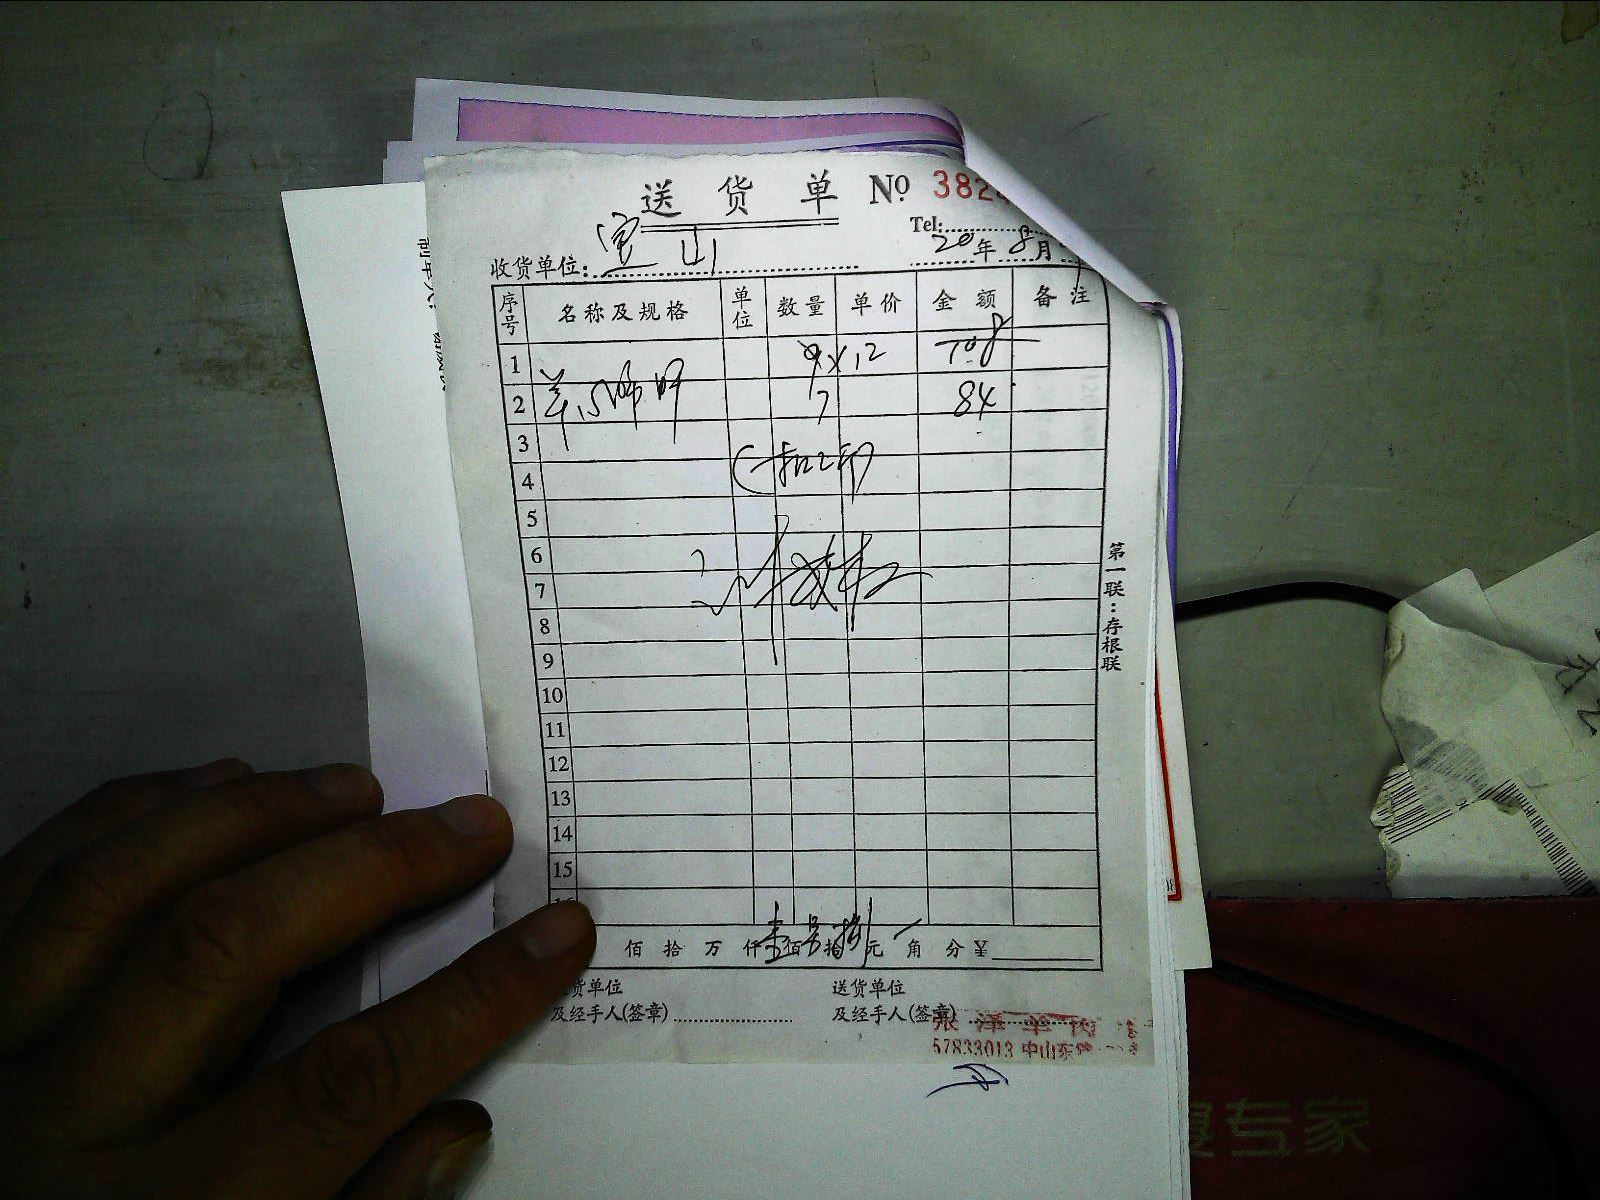 送货单 № 382
Tel:
收货单位: 宝山 20年8月
序号 名称及规格 单位 数量 单价 金额 备注
1 9×12 108
2 羊 7 84
3
4
5
6
7
8
9
10
11
12
13
14
15
佰 拾 万 仟 壹 佰 另 拾 捌 元 角 分 ¥
货单位 送货单位
及经手人(签章) 及经手人(签章)
张泽羊肉
57833013 中山东
第一联:存根联
专家